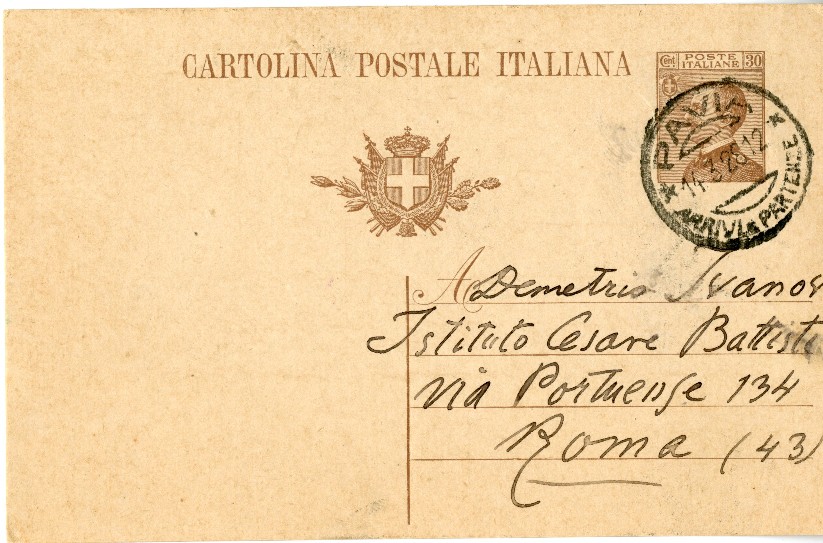 CARTOLINA POSTALE ITALIANA
Cent POSTE ITALIANE 30
* PAVIA *
14.3.26.12
ARRIVI & PARTENZE
A Demetrio Ivanov
Istituto Cesare Battisti
Via Portuense 134
Roma (43)